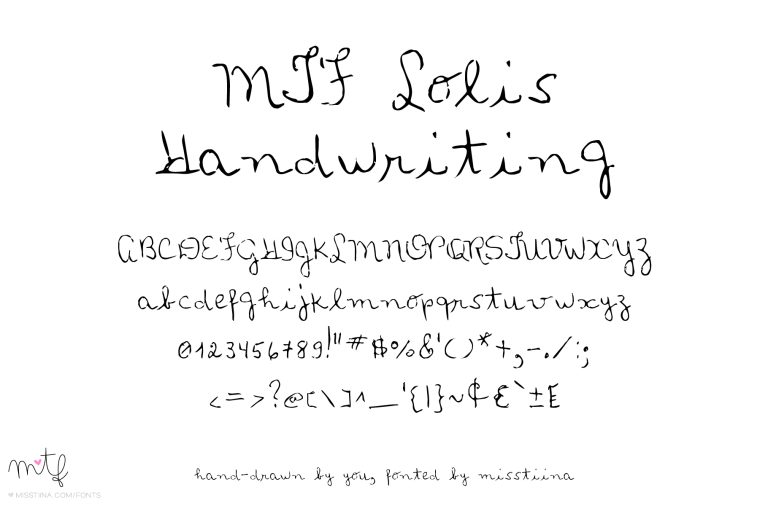 MTF Lolis
Handwriting
ABCDEFGHIJKLMNOPQRSTUVWXYZ
abcdefghijklmnopqrstuvwxyz
0123456789!"#$%&'()*+,-./:;
<=>?@[\]^_'{|}~¢£`±E
mtf
♥ MISSTIINA.COM/FONTS
hand-drawn by you, fonted by misstiina